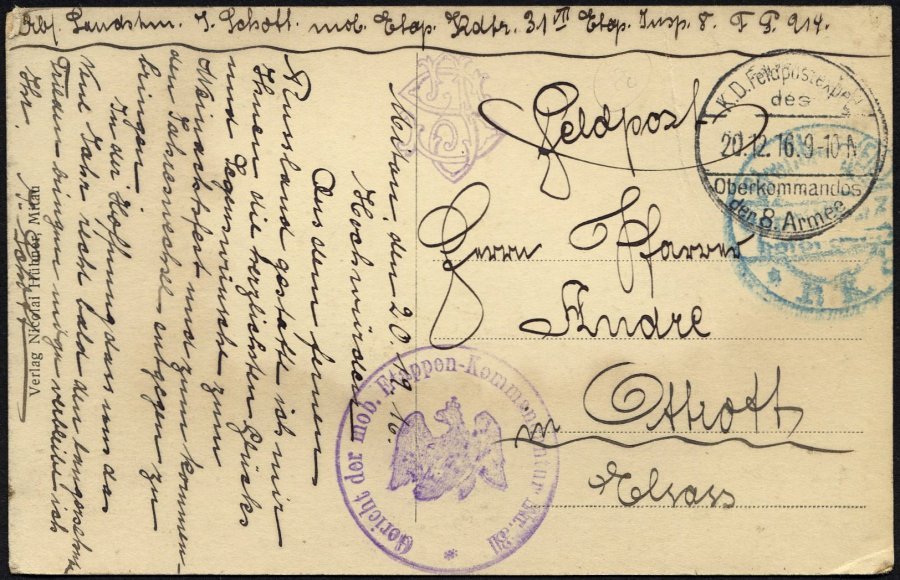 Abs. Landstm. J. Schott. mob. Etap. Kdtr. 31 VII Etap. Insp. 8. F. P. 914.
Feldpost
Herrn Pfarrer
Andre
in Ottrott
Elsass
K.D. Feldpostexped.
des
20.12.16. 9-10 N
Oberkommandos
der 8. Armee
Gericht der mob. Etappen-Kommandantur
Mitau, den 20. 12. 16.
Hochwürden
Aus dem fernen
Russland gestatte ich mir
Ihnen die herzlichsten Glücks
und Segenswünsche zum
Weinachtsfest und zum kommen-
den Jahreswechsel entgegen zu
bringen.
In der Hoffnung dass uns das
neue Jahr recht bald den langersehnten
Frieden bringen möge verbleibe ich
Ihr
J. Schott
Verlag Nicolai Mitau